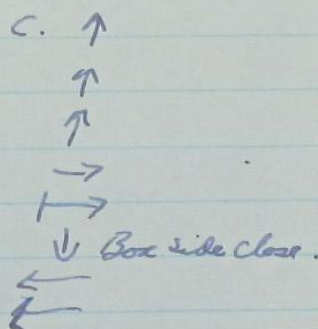 C. ↑
↑
↑
→
↦
↓ Box side close.
←
←